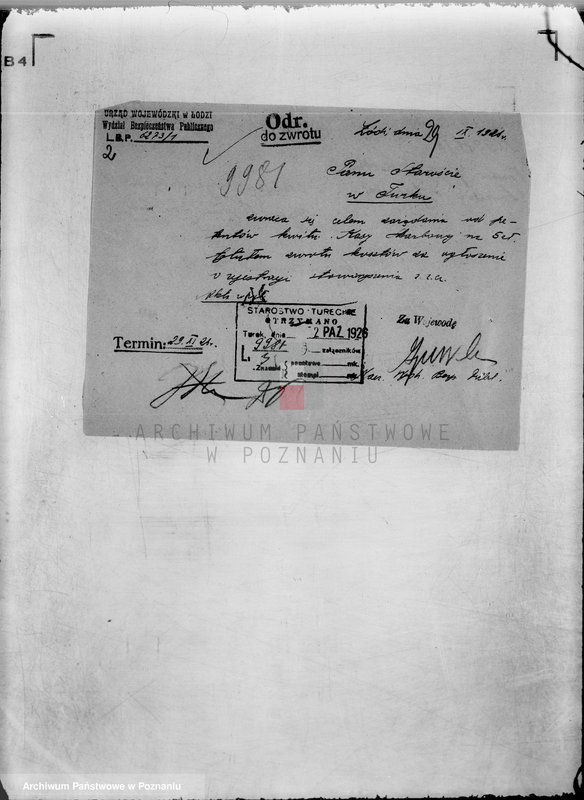 B4
URZĄD WOJEWÓDZKI w ŁODZI
Wydział Bezpieczeństwa Publicznego
L.B.P. 6273/1
2
Odr.
do zwrotu
Łódź dnia 29 IX 1926 r.
9981
Panu Staroście
w Turku
zwraca się celem zażądania od pe-
tentów kwitu Kasy Skarbowej na 5 zł.
tytułem zwrotu kosztów za ogłoszenie
o rejestracji stowarzyszenia
STAROSTWO TURECKIE
OTRZYMANO
Turek, dnia 2 PAŹ. 1926
L: 9981 3 załączników
Znaczki 3 pocztowe mk.
stempl. mk.
Za Wojewodę
Termin: 29 XI 26.
ARCHIWUM PAŃSTWOWE
W POZNANIU
Archiwum Państwowe w Poznaniu